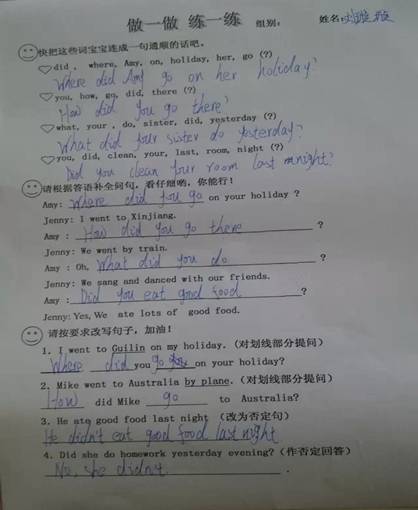 做一做 练一练 组别： 姓名：
快把这些词宝宝连成一句通顺的话吧。
did , where, Amy, on, holiday, her, go (?)
Where did Amy go on her holiday?
you, how, go, did, there (?)
How did you go there?
what, your , do, sister, did, yesterday (?)
What did your sister do yesterday?
you, did, clean, your, last, room, night (?)
Did you clean your room last night?
请根据答语补全问句，看仔细哟，你能行！
Amy: Where did you go on your holiday ?
Jenny: I went to Xinjiang.
Amy : How did you go there ?
Jenny: We went by train.
Amy : Oh, What did you do ?
Jenny: We sang and danced with our friends.
Amy : Did you eat good food ?
Jenny: Yes, We ate lots of good food.
请按要求改写句子，加油！
1. I went to Guilin on my holiday. (对划线部分提问)
Where did you go on your holiday?
2. Mike went to Australia by plane. (对划线部分提问)
How did Mike go to Australia?
3. He ate good food last night （改为否定句）
He didn't eat good food last night
4. Did she do homework yesterday evening? (作否定回答)
No, she didn't .